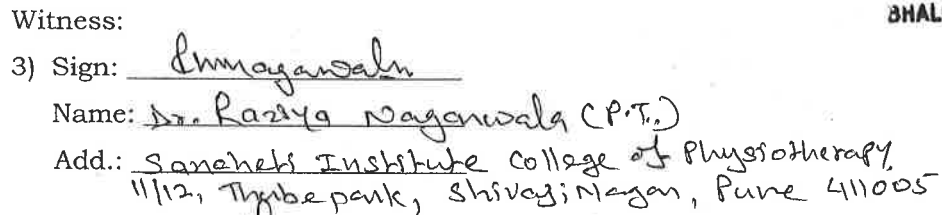 Witness:
BHAL
3) Sign:
Name: Dr. Raziya Nagarwala (P.T.)
Add.: Sancheti Institute College of Physiotherapy
11/12, Thube park, Shivaji Nagar, Pune 411005